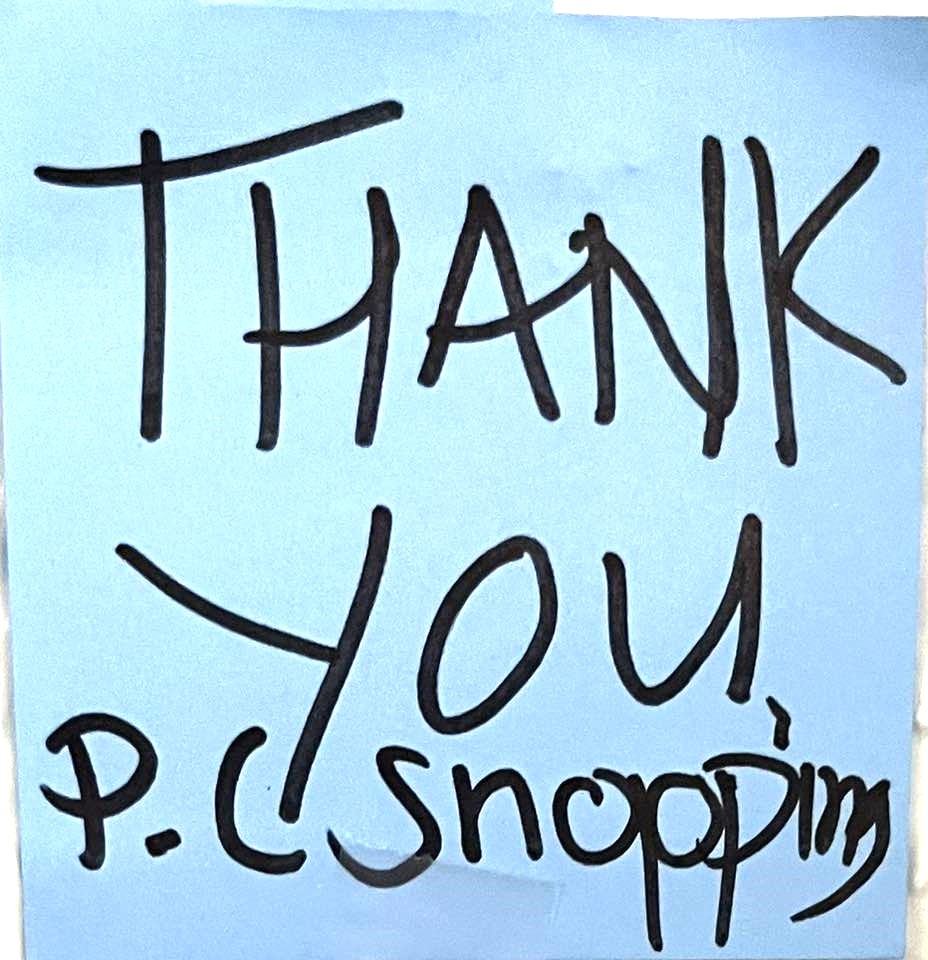 THANK
YOU,
P.C Snopping